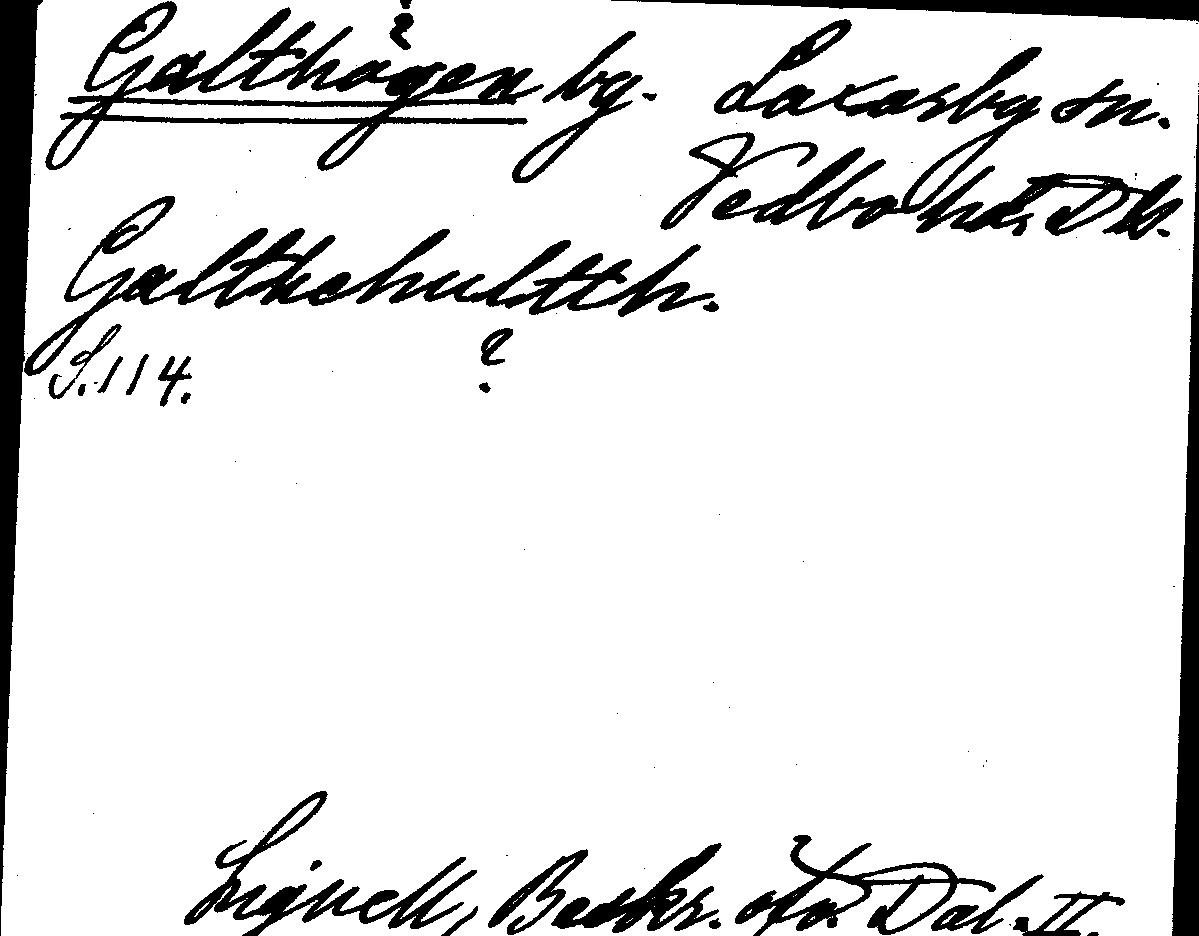 ?
Galthögen bg. Laxarby sn.
Vedbo hd, Dls.
Galtkchultth.
S. 114. ?
Lignell, Beskr. öfv. Dal. II.